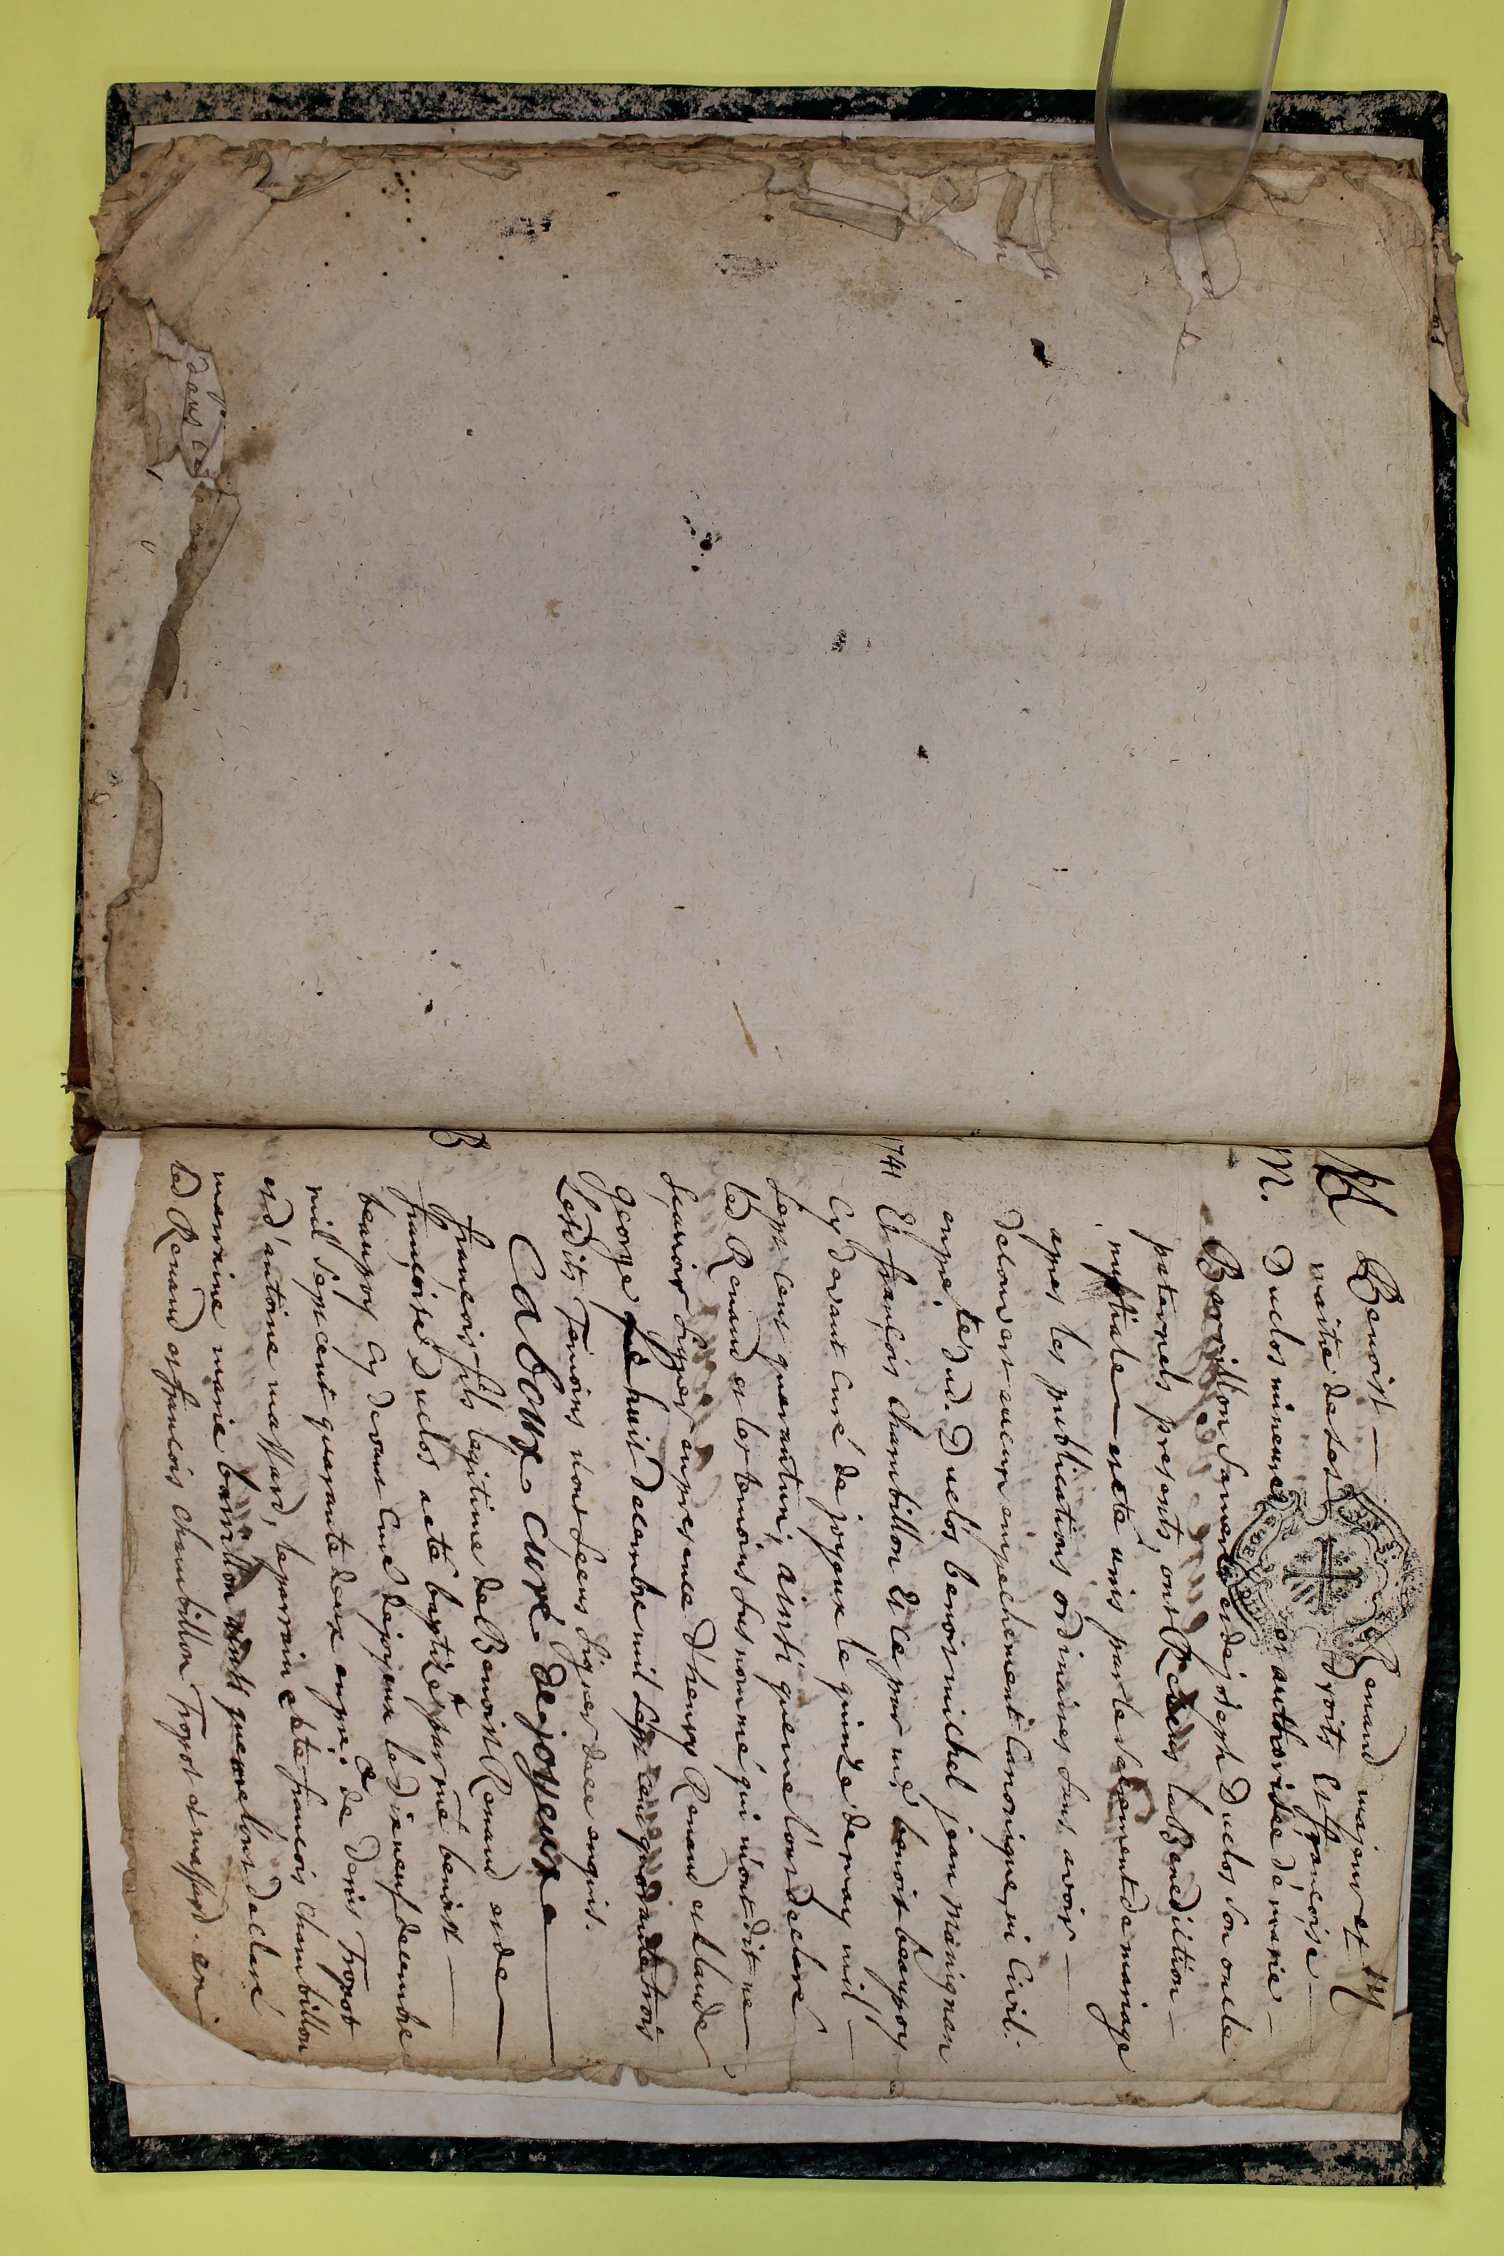 Benoist Renaud majeur et M
maître de ses droits Et françoise
M. Duclos mineure et authorisée de marie
Barrillon sa mere et de joseph Duclos son oncle
paternels presents, ont Receus la Benediction
nuptiale et eté unis par le sacrement de mariage
apres les publications ordinaires sans avoir
decouvert aucun empechement Canonique, ni Civil.
en pnce dud. Duclos benoit michel jean Marignan
1741 Et françois chambillon Et ce par me benoit beaupoy
Cy devant curé de joyeux le quinze de may mil
sept cent quarantun; ainsi que me l'ont declaré
led Renaud et les temoins susnommé qui m'ont dit ne
sçavoir signer en presence d'henry Renaud et Claude
george le huit decembre mil sept cent quarante trois
Lesdits Temoins n'ont sceus signer de ce enquis.
Caboux curé de joyeux
B
françois fils legitime de Benoist Renaud et de
françoise Duclos a eté baptizé par me benoist
beaupoy Cy devant Curé de joyeux le dixneuf decembre
mil sept cent quarante deux en pnce de Denis Troyot
et d'antoine massard, le parrain a eté francois Chambillon
marraine marie barrillon que me l'ont declaré
led Renaud et francois chambillon Troyot et massard. en
dans la